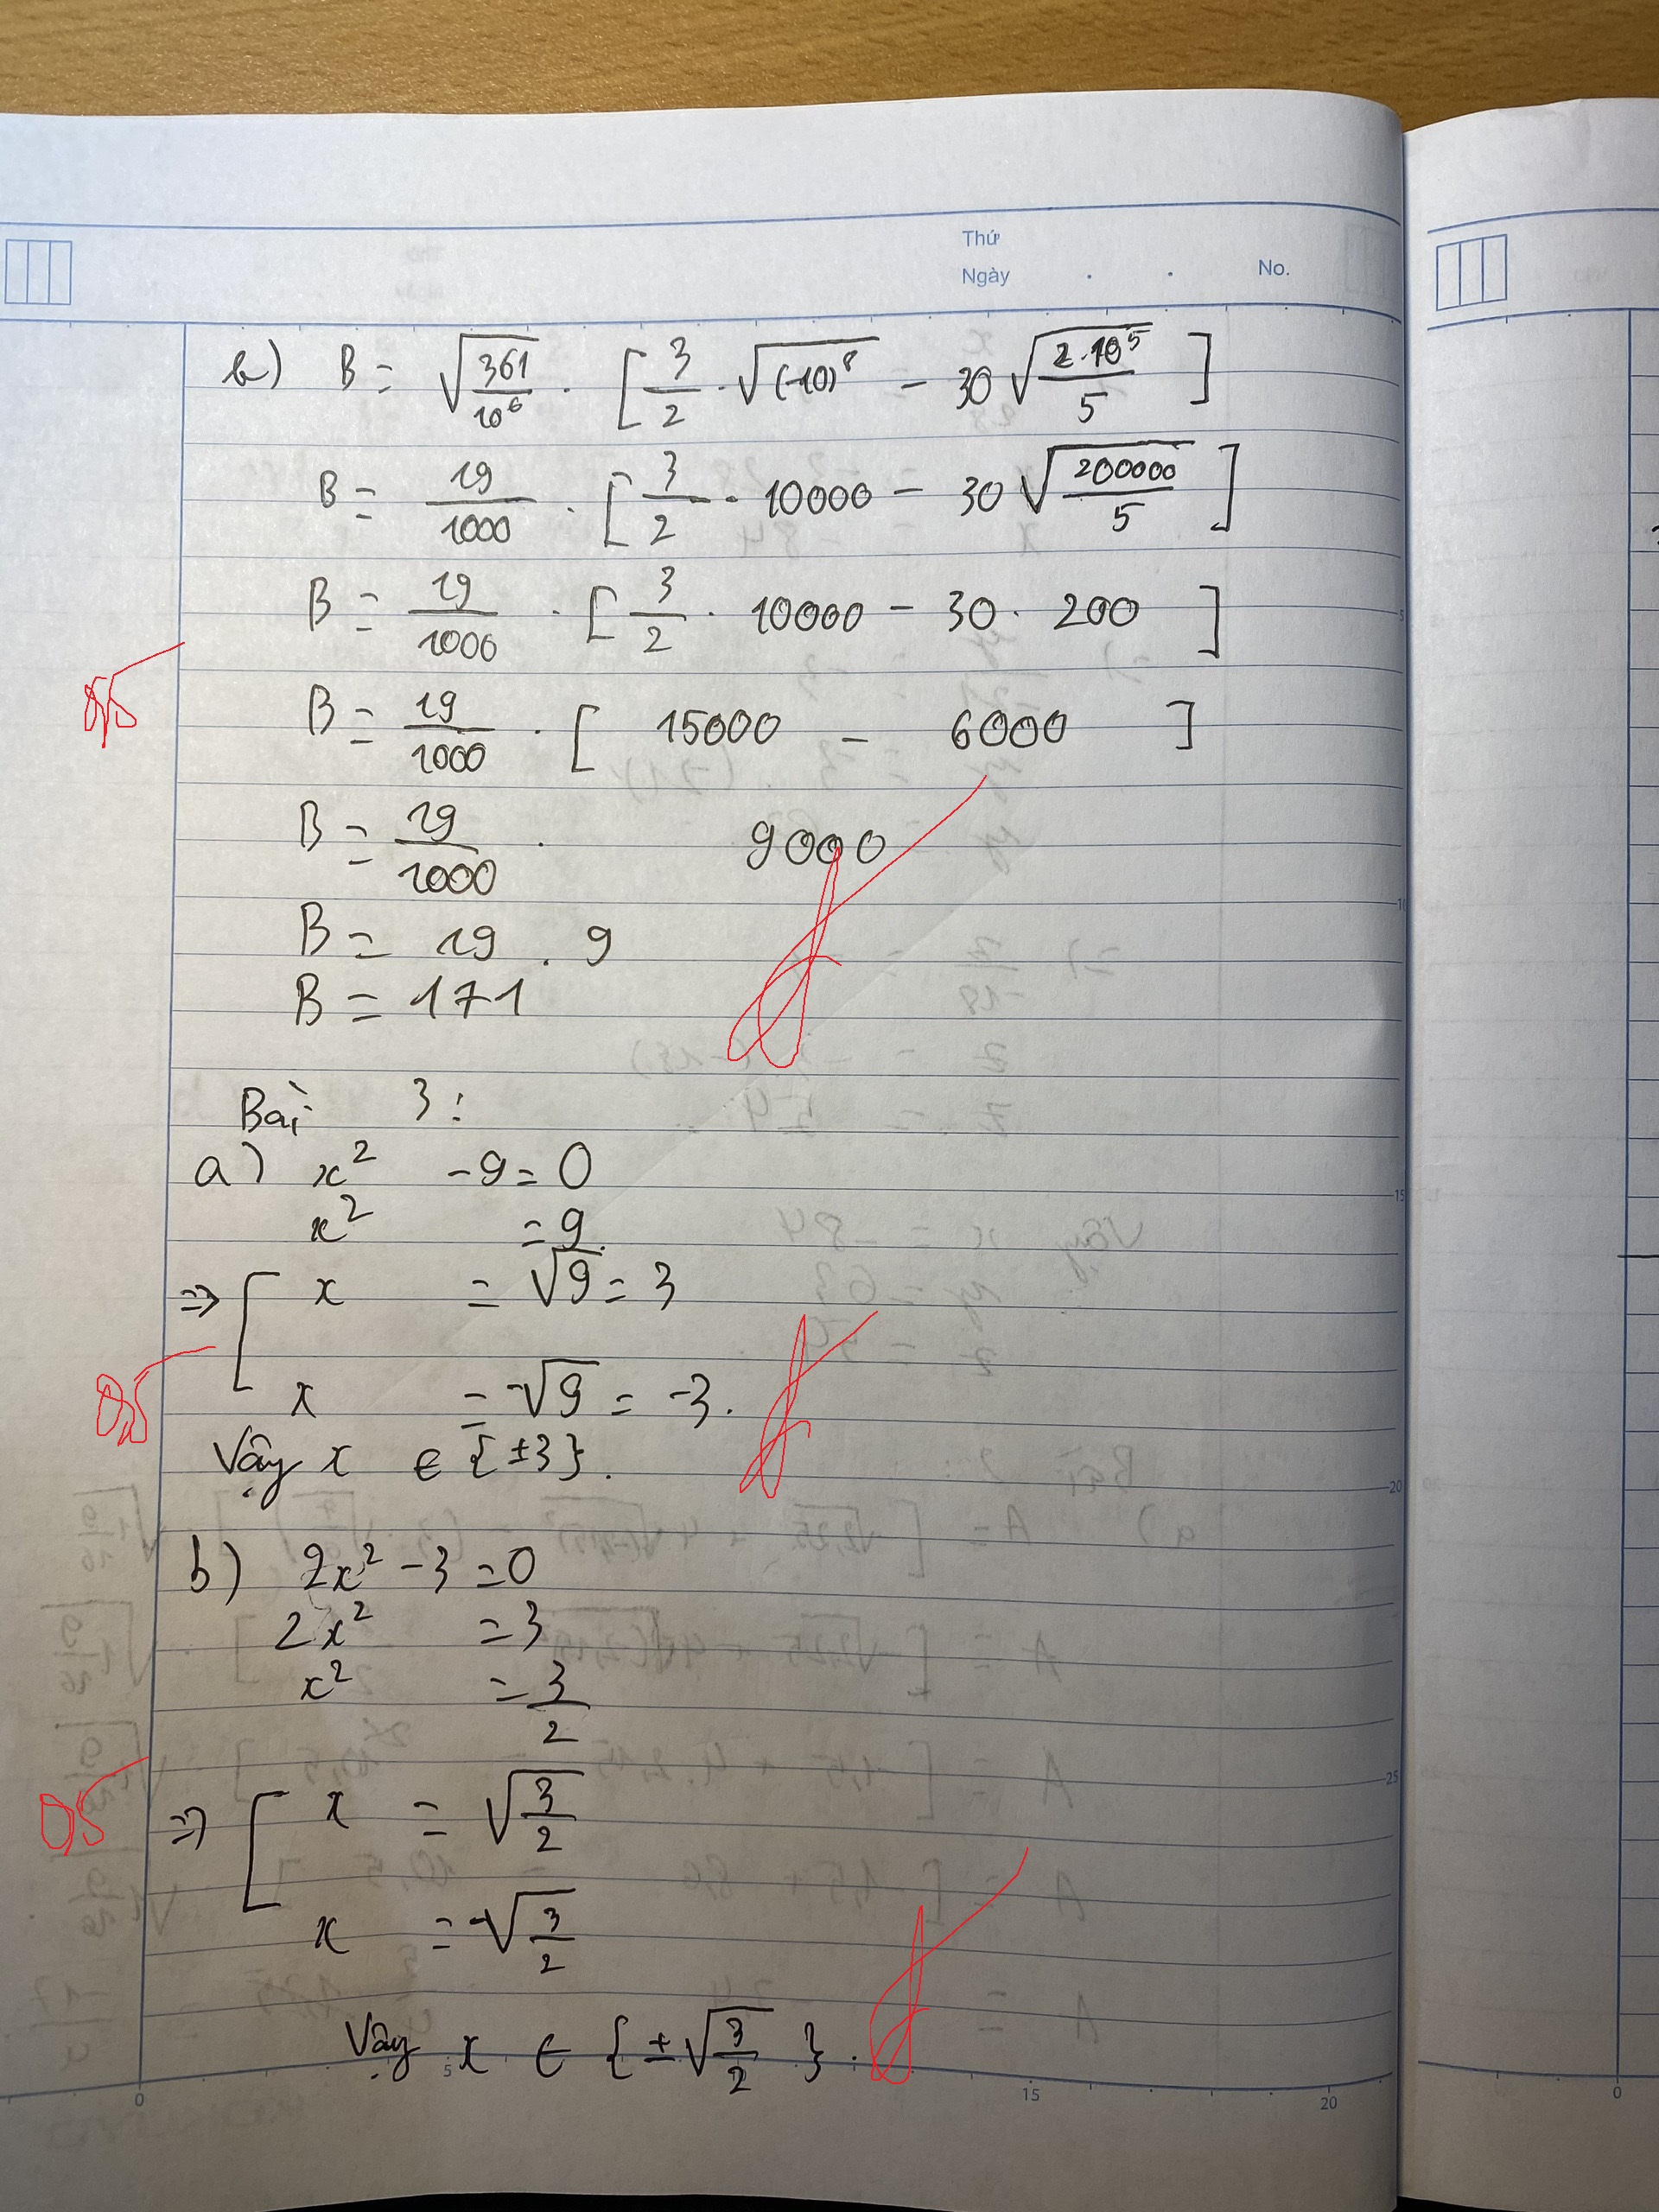 Thứ
Ngày . . No.
b) B = √(361/10⁶) · [3/2 · √((-10)⁸) - 30√(2·10⁵/5)]
B = 19/1000 · [3/2 · 10000 - 30√(200000/5)]
B = 19/1000 · [3/2 · 10000 - 30 · 200]
B = 19/1000 · [15000 - 6000]
B = 19/1000 · 9000
B = 19 . 9
B = 171
Bài 3:
a) x² - 9 = 0
x² = 9
=> [ x = √9 = 3
x = -√9 = -3.
0,5
Vậy x ∈ {±3}.
b) 2x² - 3 = 0
2x² = 3
x² = 3/2
0,5
=> [ x = √(3/2)
x = -√(3/2)
Vậy x ∈ {±√(3/2)}.
5
10
15
20
25
0
5
15
20
0